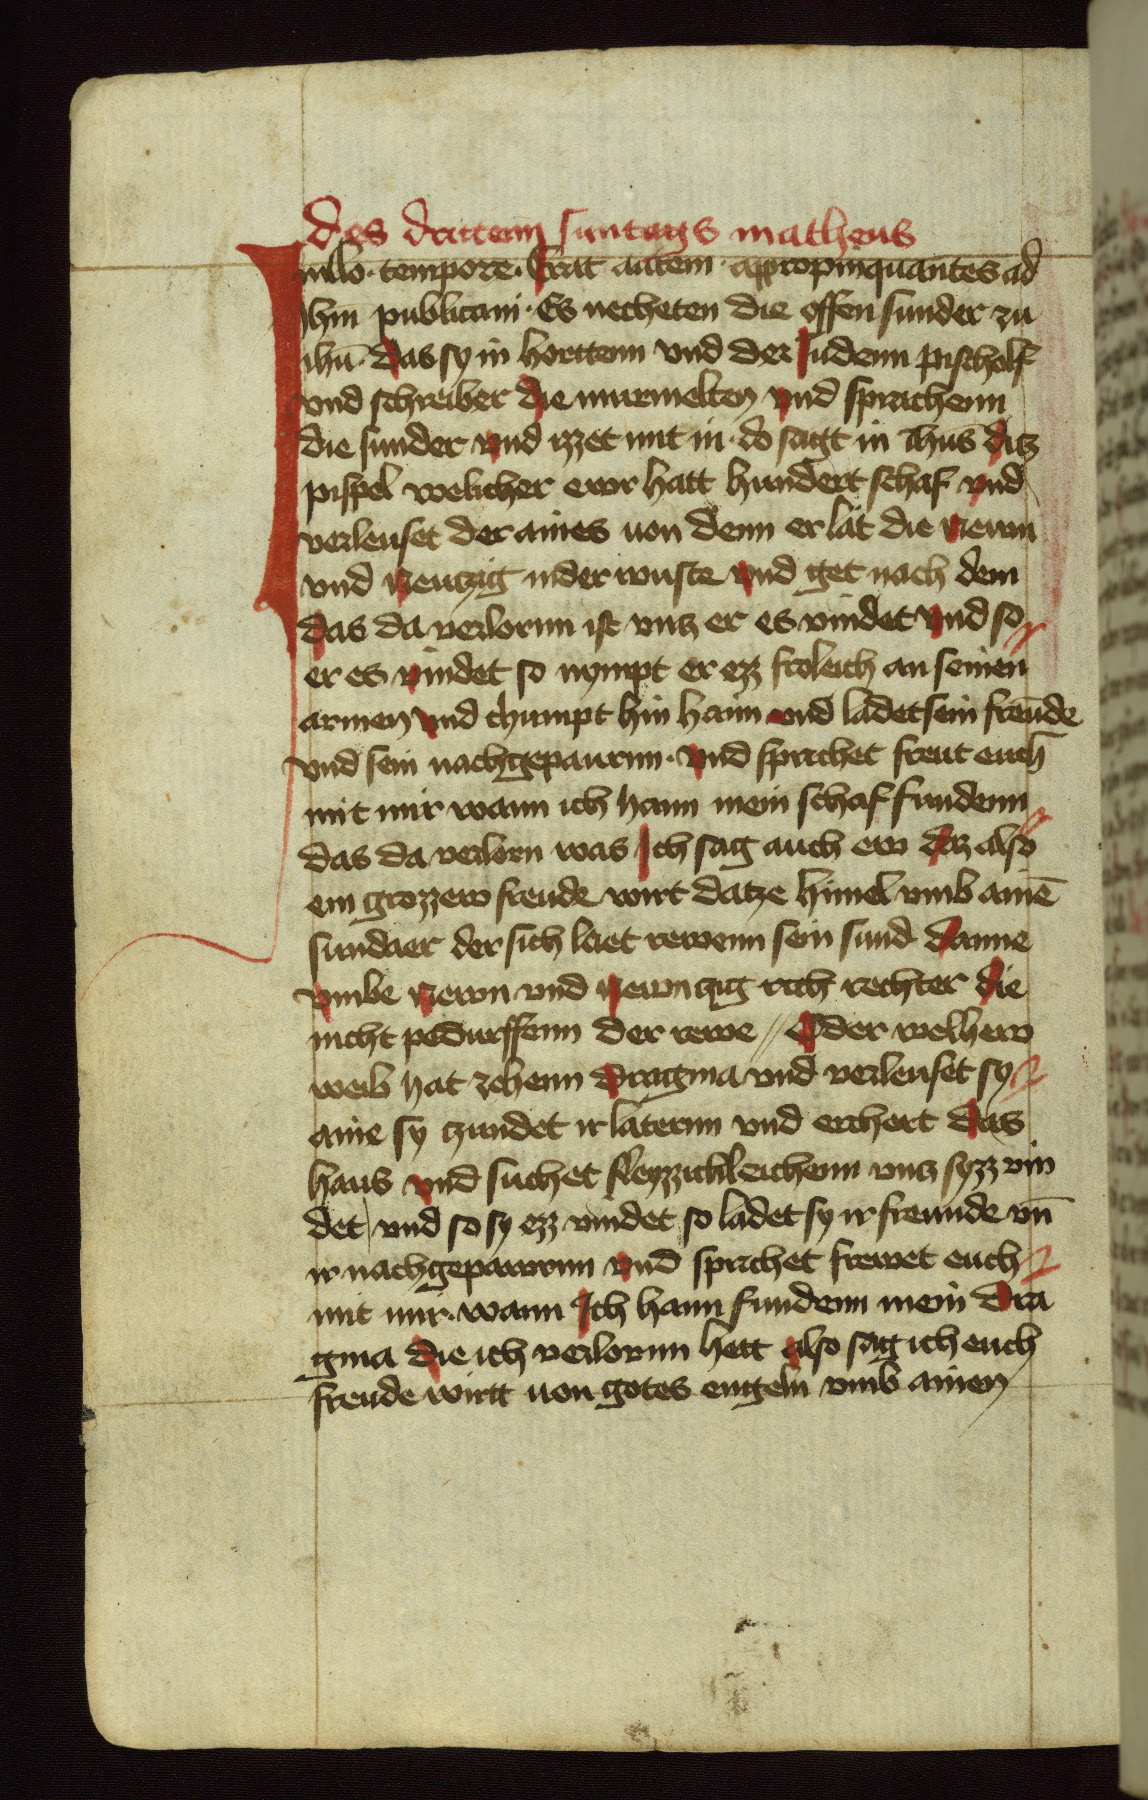 des dritten suntags matheus
In illo · tempore · Erat autem · appropinquantes ad
ihm̄ publicani · Es necheten die offen sunder zu
ihū · das sy in horttenn vnd der Judenn pischolf
vnd schreiber die murmelten vnd sprachenn
die sunder vnd izzet mit in · do sagt in Ihūs ditz
pispel welicher ewr hatt hundert schaf vnd
verleuset der aines von denn er lät die Newn
vnd Neutzig inder wuste vnd get nach dem
das da verlornn ist vntz er es vindet vnd so
er es vindet so nympt er ezz froleich an seinen
armen vnd chumpt hin haim vnd ladet sein freunde
vnd sein nachgepaurnn · vnd sprichet freut euch
mit mir wann ich hann mein schaf fundenn
das da verlorn was Ich sag auch ew daz also
ein grozzew freude wirt datze himel vmb ainē
sundaer der sich laet rewenn sein sund danne
vmbe Newn vnd Newnczig rech rechter die
nicht pedurffenn der rewe // Oder welhew
weib hat zehenn dragma vnd verleuset sy
aine sy zundet ir laternn vnd erchert das
haus vnd suchet fleyzzichleichenn vntz syzz vin
det vnd so sy ezz vindet so ladet sy ir freunde vn̄
ir nachgepawrnn vnd sprichet frewet euch
mit mir · wann Ich hann fundenn mein dra
gma die ich verlornn hett also sag ich euch
freude wirtt von gotes engeln vmb ainen